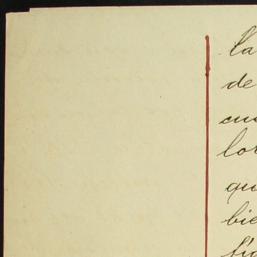 la
de
cu
lor
qu
bie